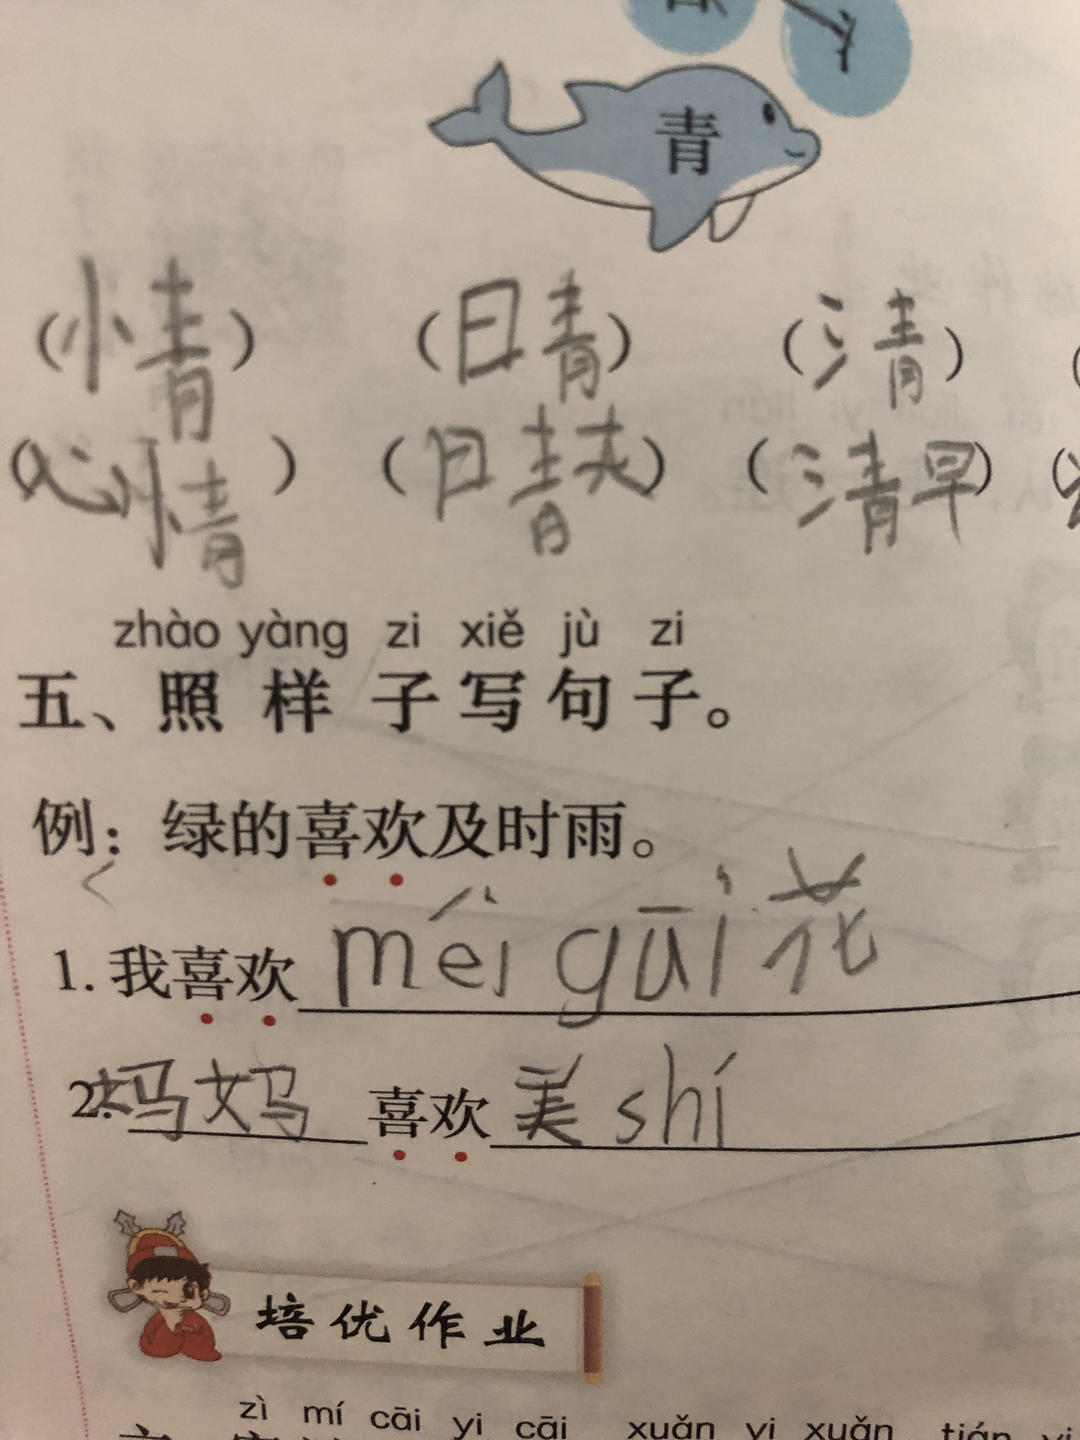 青
(情) (晴) (清)
(心情) (晴天) (清早)
zhào yàng zi xiě jù zi
五、照样子写句子。
例：绿的喜欢及时雨。
1. 我喜欢méi guī 花
2. 妈妈喜欢美 shí
培优作业
zì mí cāi yi cāi xuǎn yi xuǎn tián yi